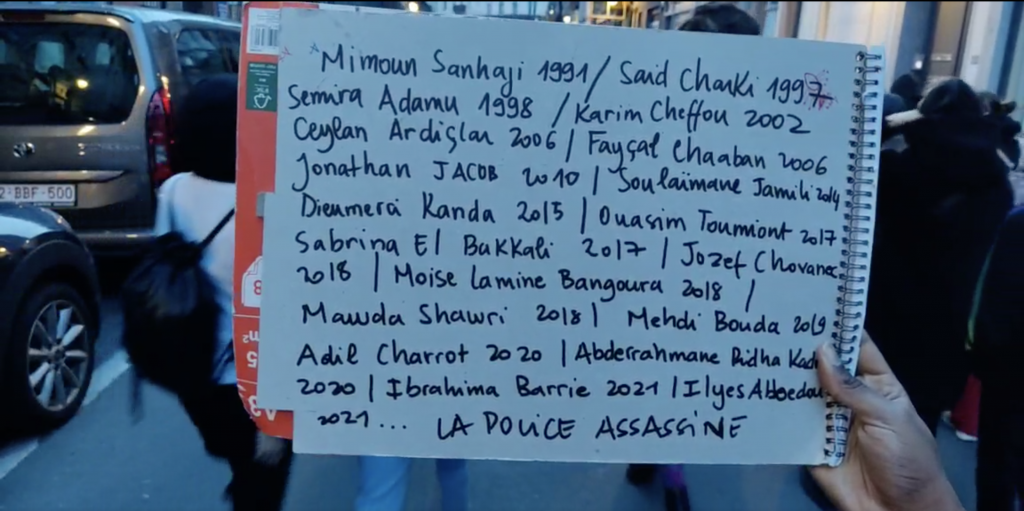 Mimoun Sanhaji 1991 / Said Charki 1997
Semira Adamu 1998 / Karim Cheffou 2002
Ceylan Ardişlar 2006 | Fayçal Chaaban 2006
Jonathan JACOB 2010 | Soulaïmane Jamili 2014
Dieumerci Kanda 2015 | Ouasim Toumiont 2017
Sabrina El Bakkali 2017 | Jozef Chovanec
2018 | Moise Lamine Bangoura 2018 |
Mawda Shawri 2018 | Mehdi Bouda 2019
Adil Charrot 2020 | Abderrahmane Ridha Kad
2020 | Ibrahima Barrie 2021 | Ilyes Abbedou
2021... LA POLICE ASSASSINE
2-BBF-500
A3